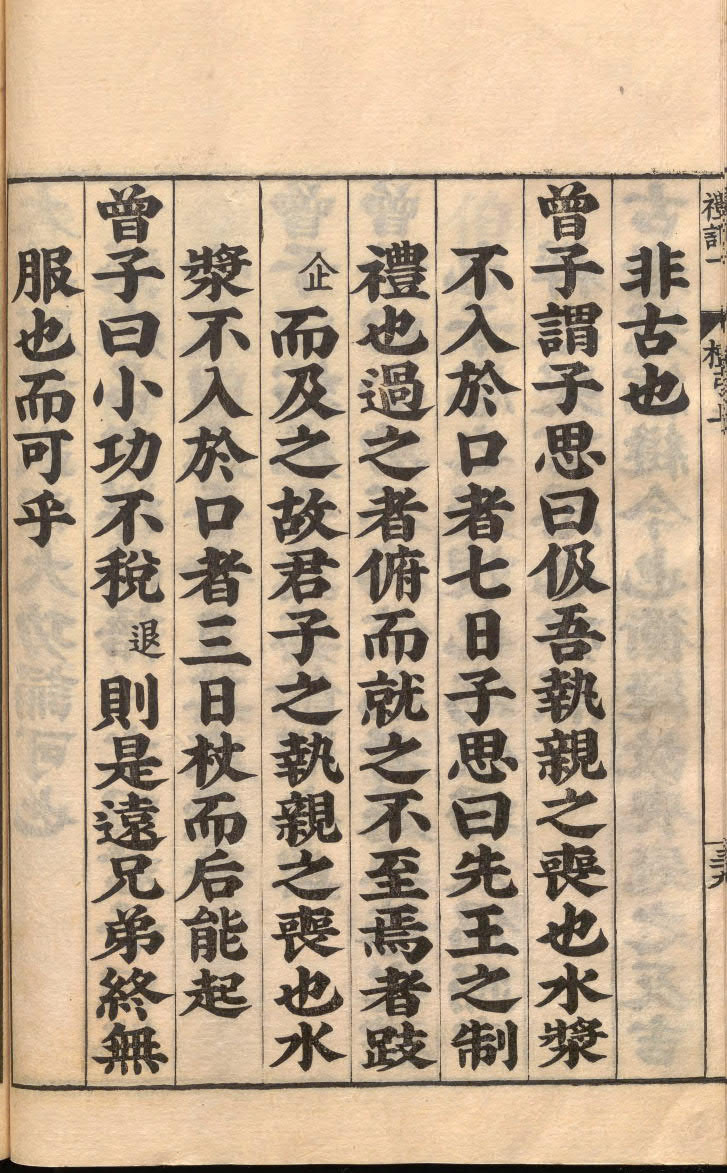 非古也
曾子謂子思曰伋吾執親之喪也水漿
不入於口者七日子思曰先王之制
禮也過之者俯而就之不至焉者跂
企而及之故君子之執親之喪也水
漿不入於口者三日杖而后能起
曾子曰小功不稅退則是遠兄弟終無
服也而可乎